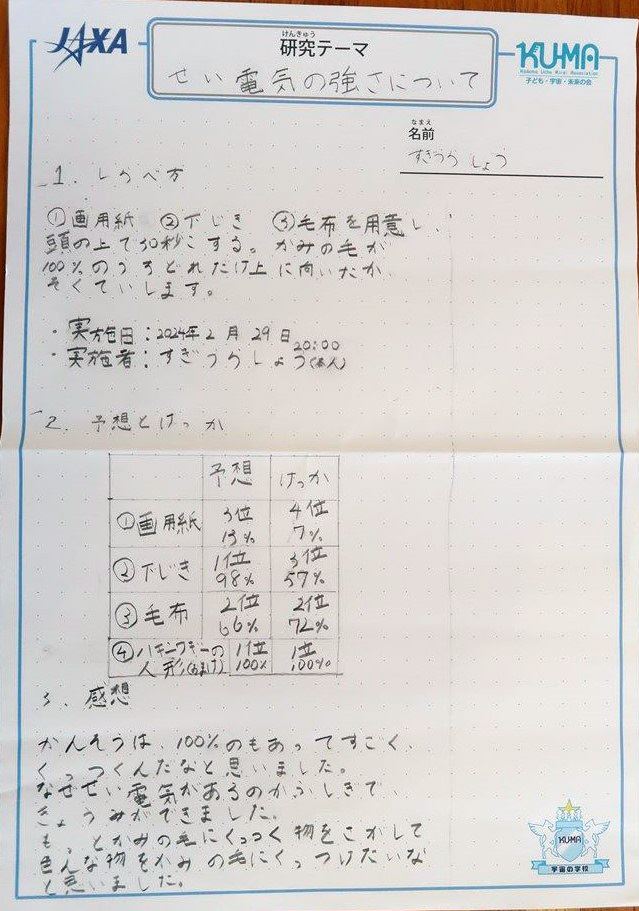 JAXA
けんきゅう
研究テーマ
せい電気の強さについて
KU-MA
Kodomo Uchu Mirai Association
子ども・宇宙・未来の会
なまえ
名前
すぎうら しょう
1. しらべ方
①画用紙 ②下じき ③毛布を用意し、
頭の上で30秒こする。かみの毛が
100%のうちどれだけ上に向いたか
そくていします。
・実施日：2024年2月29日
20:00
・実施者：すぎうらしょう(本人)
2. 予想とけっか
予想 けっか
①画用紙 3位 13% 4位 7%
②下じき 1位 98% 3位 57%
③毛布 2位 66% 2位 72%
④ハギーワギーの人形(おまけ) 1位 100% 1位 100%
3. 感想
かんそうは、100%のもあってすごく、
くっつくんだなと思いました。
なぜせい電気があるのかふしぎで、
きょうみができました。
もっとかみの毛にくっつく物をさがして
色んな物をかみの毛にくっつけたいな
と思いました。
KU-MA
宇宙の学校